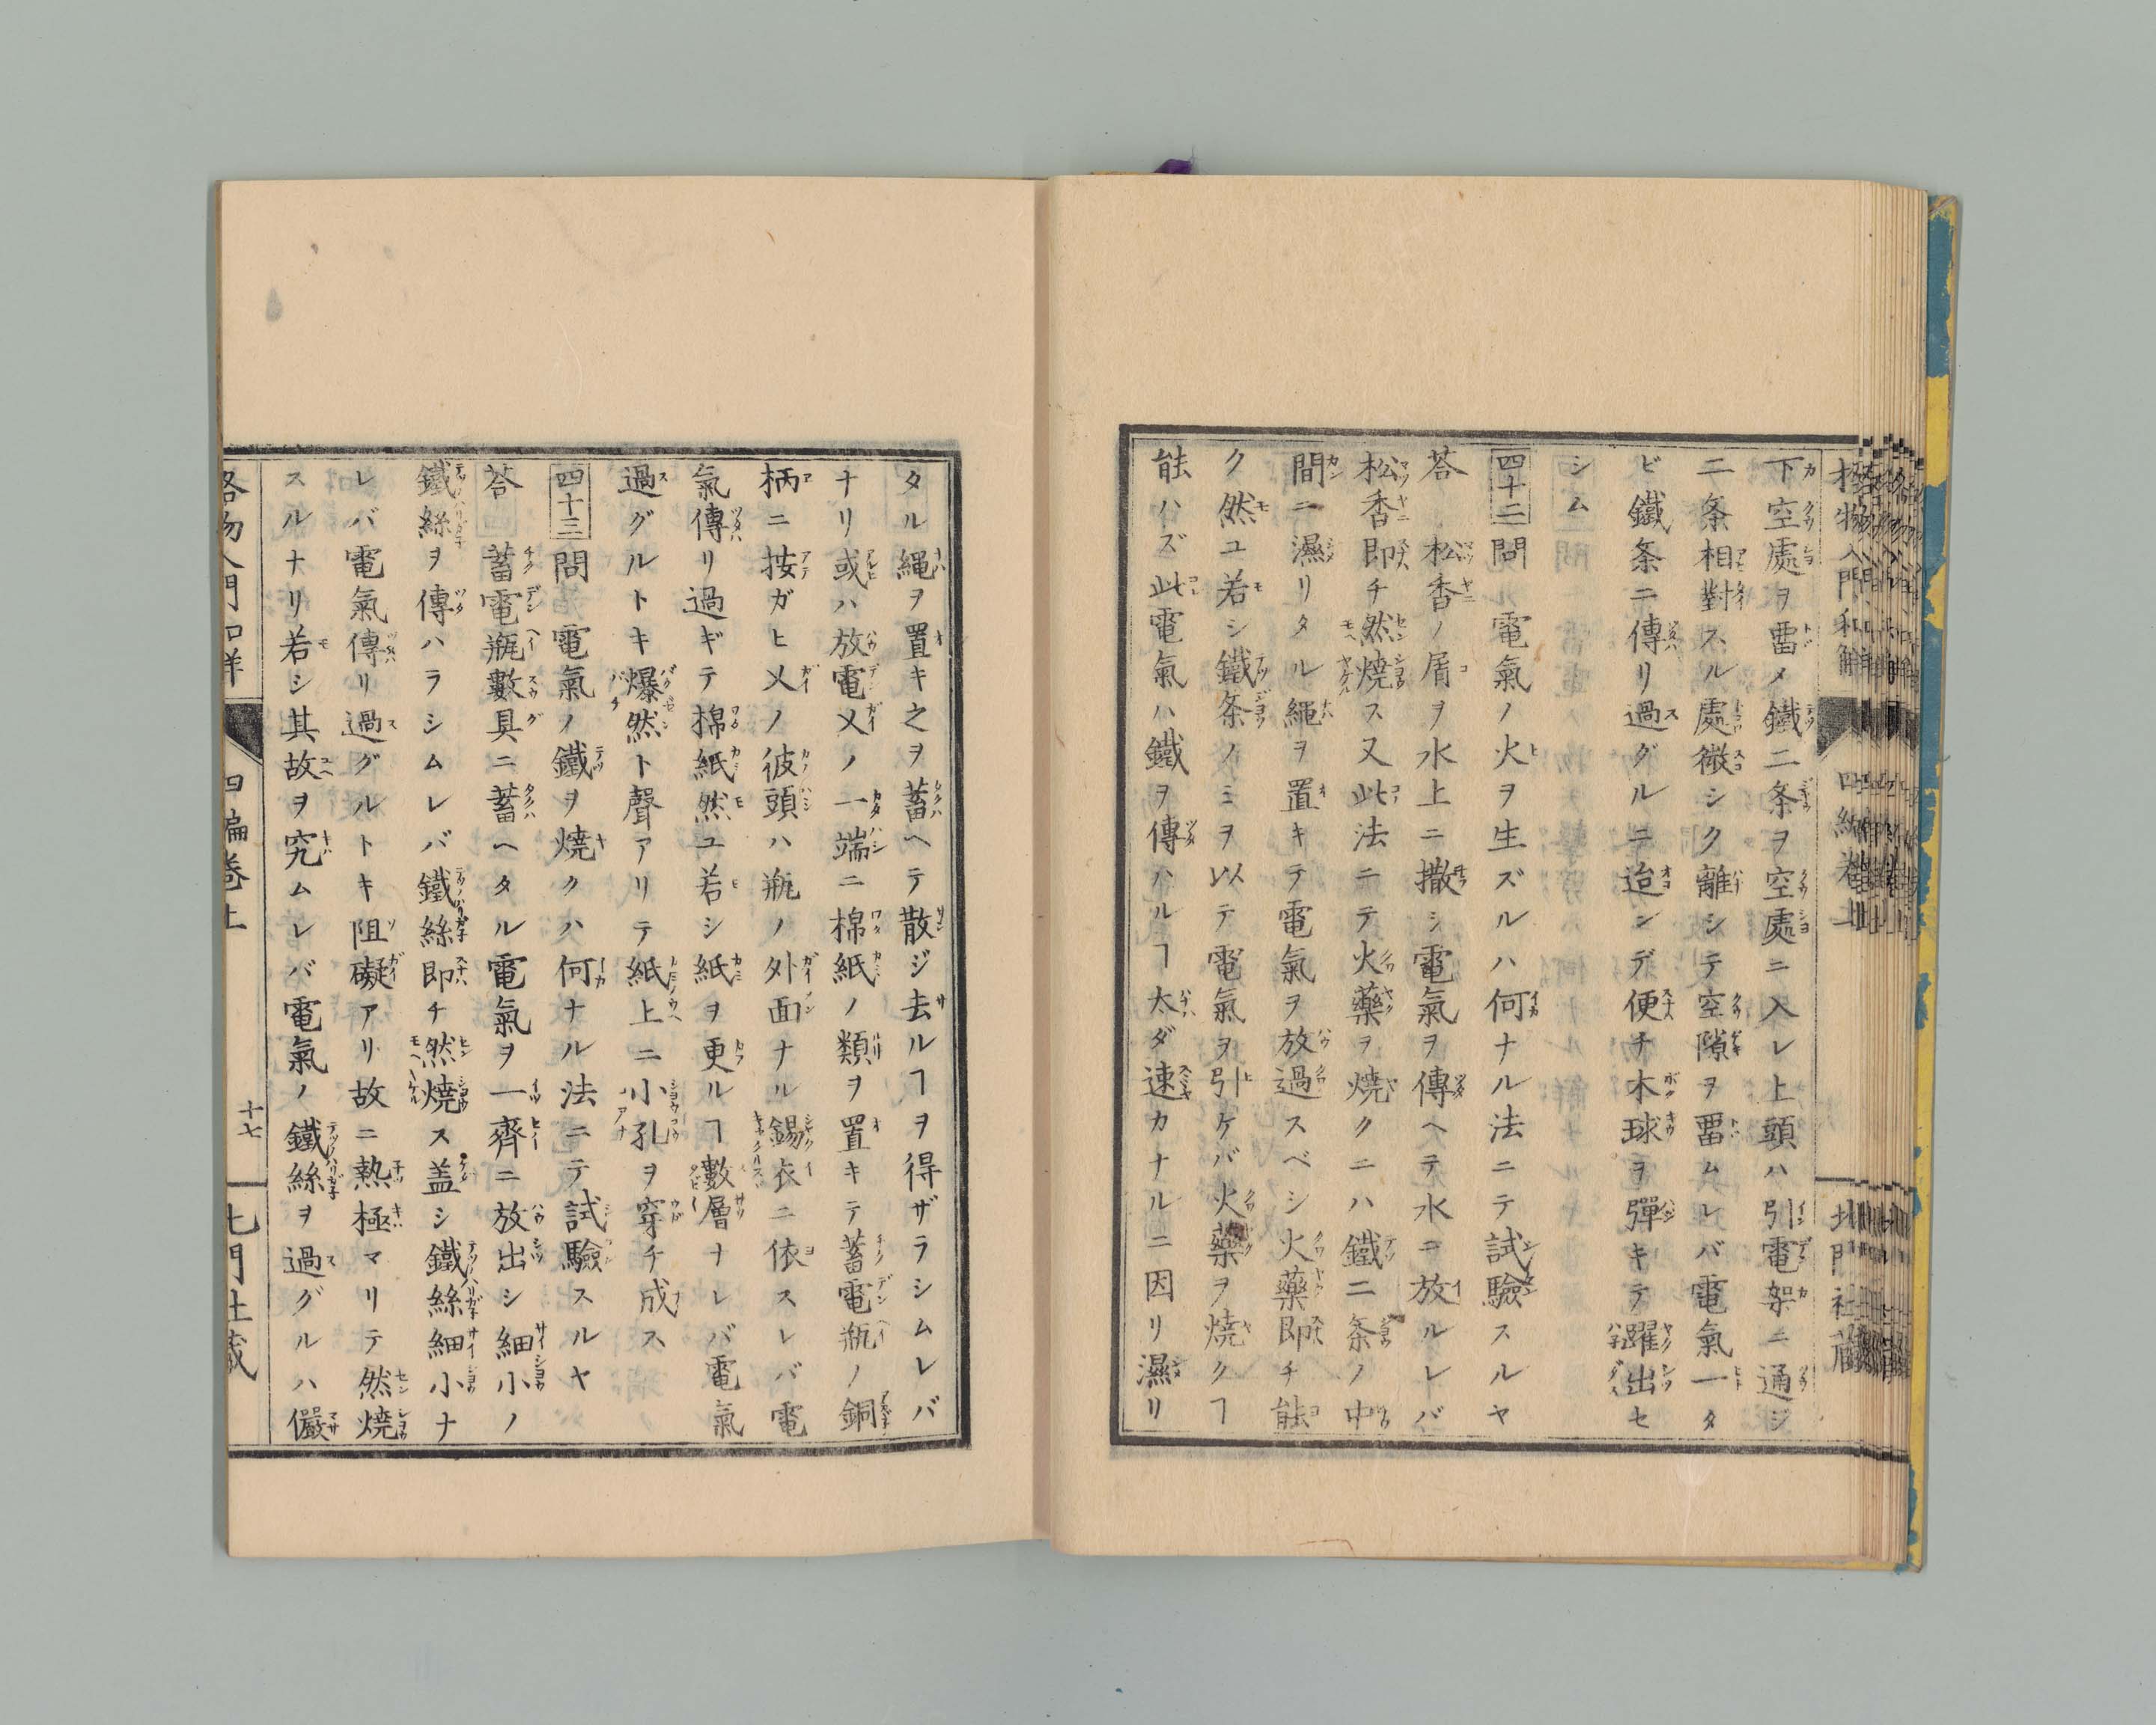 格物入門和解
四編卷上
北門社藏
下空處ヲ畱メ鐵二条ヲ空處ニ入レ上頭ハ引電架ニ通シ
二条相對スル處微シク離シテ空隙ヲ畱ムレバ電氣一タ
ビ鐵条ニ傳リ過グルニ迨ンデ便チ木球ヲ彈キテ躍出セ
シム
四十二問 電氣ノ火ヲ生ズルハ何ナル法ニテ試驗スルヤ
荅 松香ノ屑ヲ水上ニ撒シ電氣ヲ傳ヘテ水ニ放ルレバ
松香即チ然燒ス又此法ニテ火藥ヲ燒クニハ鐵二条ノ中
間ニ濕リタル繩ヲ置キテ電氣ヲ放過スベシ火藥即チ能
ク然ユ若シ鐵条ノミヲ以テ電氣ヲ引ケバ火藥ヲ燒クヿ
能ハズ此電氣ハ鐵ヲ傳ハルヿ太ダ速カナルニ因リ濕リ
タル繩ヲ置キ之ヲ蓄ヘテ散ジ去ルヿヲ得ザラシムレバ
ナリ或ハ放電乂ノ一端ニ棉紙ノ類ヲ置キテ蓄電瓶ノ銅
柄ニ按ガヒ乂ノ彼頭ハ瓶ノ外面ナル錫衣ニ依スレバ電
氣傳リ過ギテ棉紙然ユ若シ紙ヲ更ルヿ數層ナレバ電氣
過グルトキ爆然ト聲アリテ紙上ニ小孔ヲ穿チ成ス
四十三問 電氣ノ鐵ヲ燒クハ何ナル法ニテ試驗スルヤ
荅 蓄電瓶數具ニ蓄ヘタル電氣ヲ一齊ニ放出シ細小ノ
鐵絲ヲ傳ハラシムレバ鐵絲即チ然燒ス盖シ鐵絲細小ナ
レバ電氣傳リ過グルトキ阻礙アリ故ニ熱極マリテ然燒
スルナリ若シ其故ヲ究ムレバ電氣ノ鐵絲ヲ過グルハ儼
格物入門和解
四編卷上
十七
北門社藏